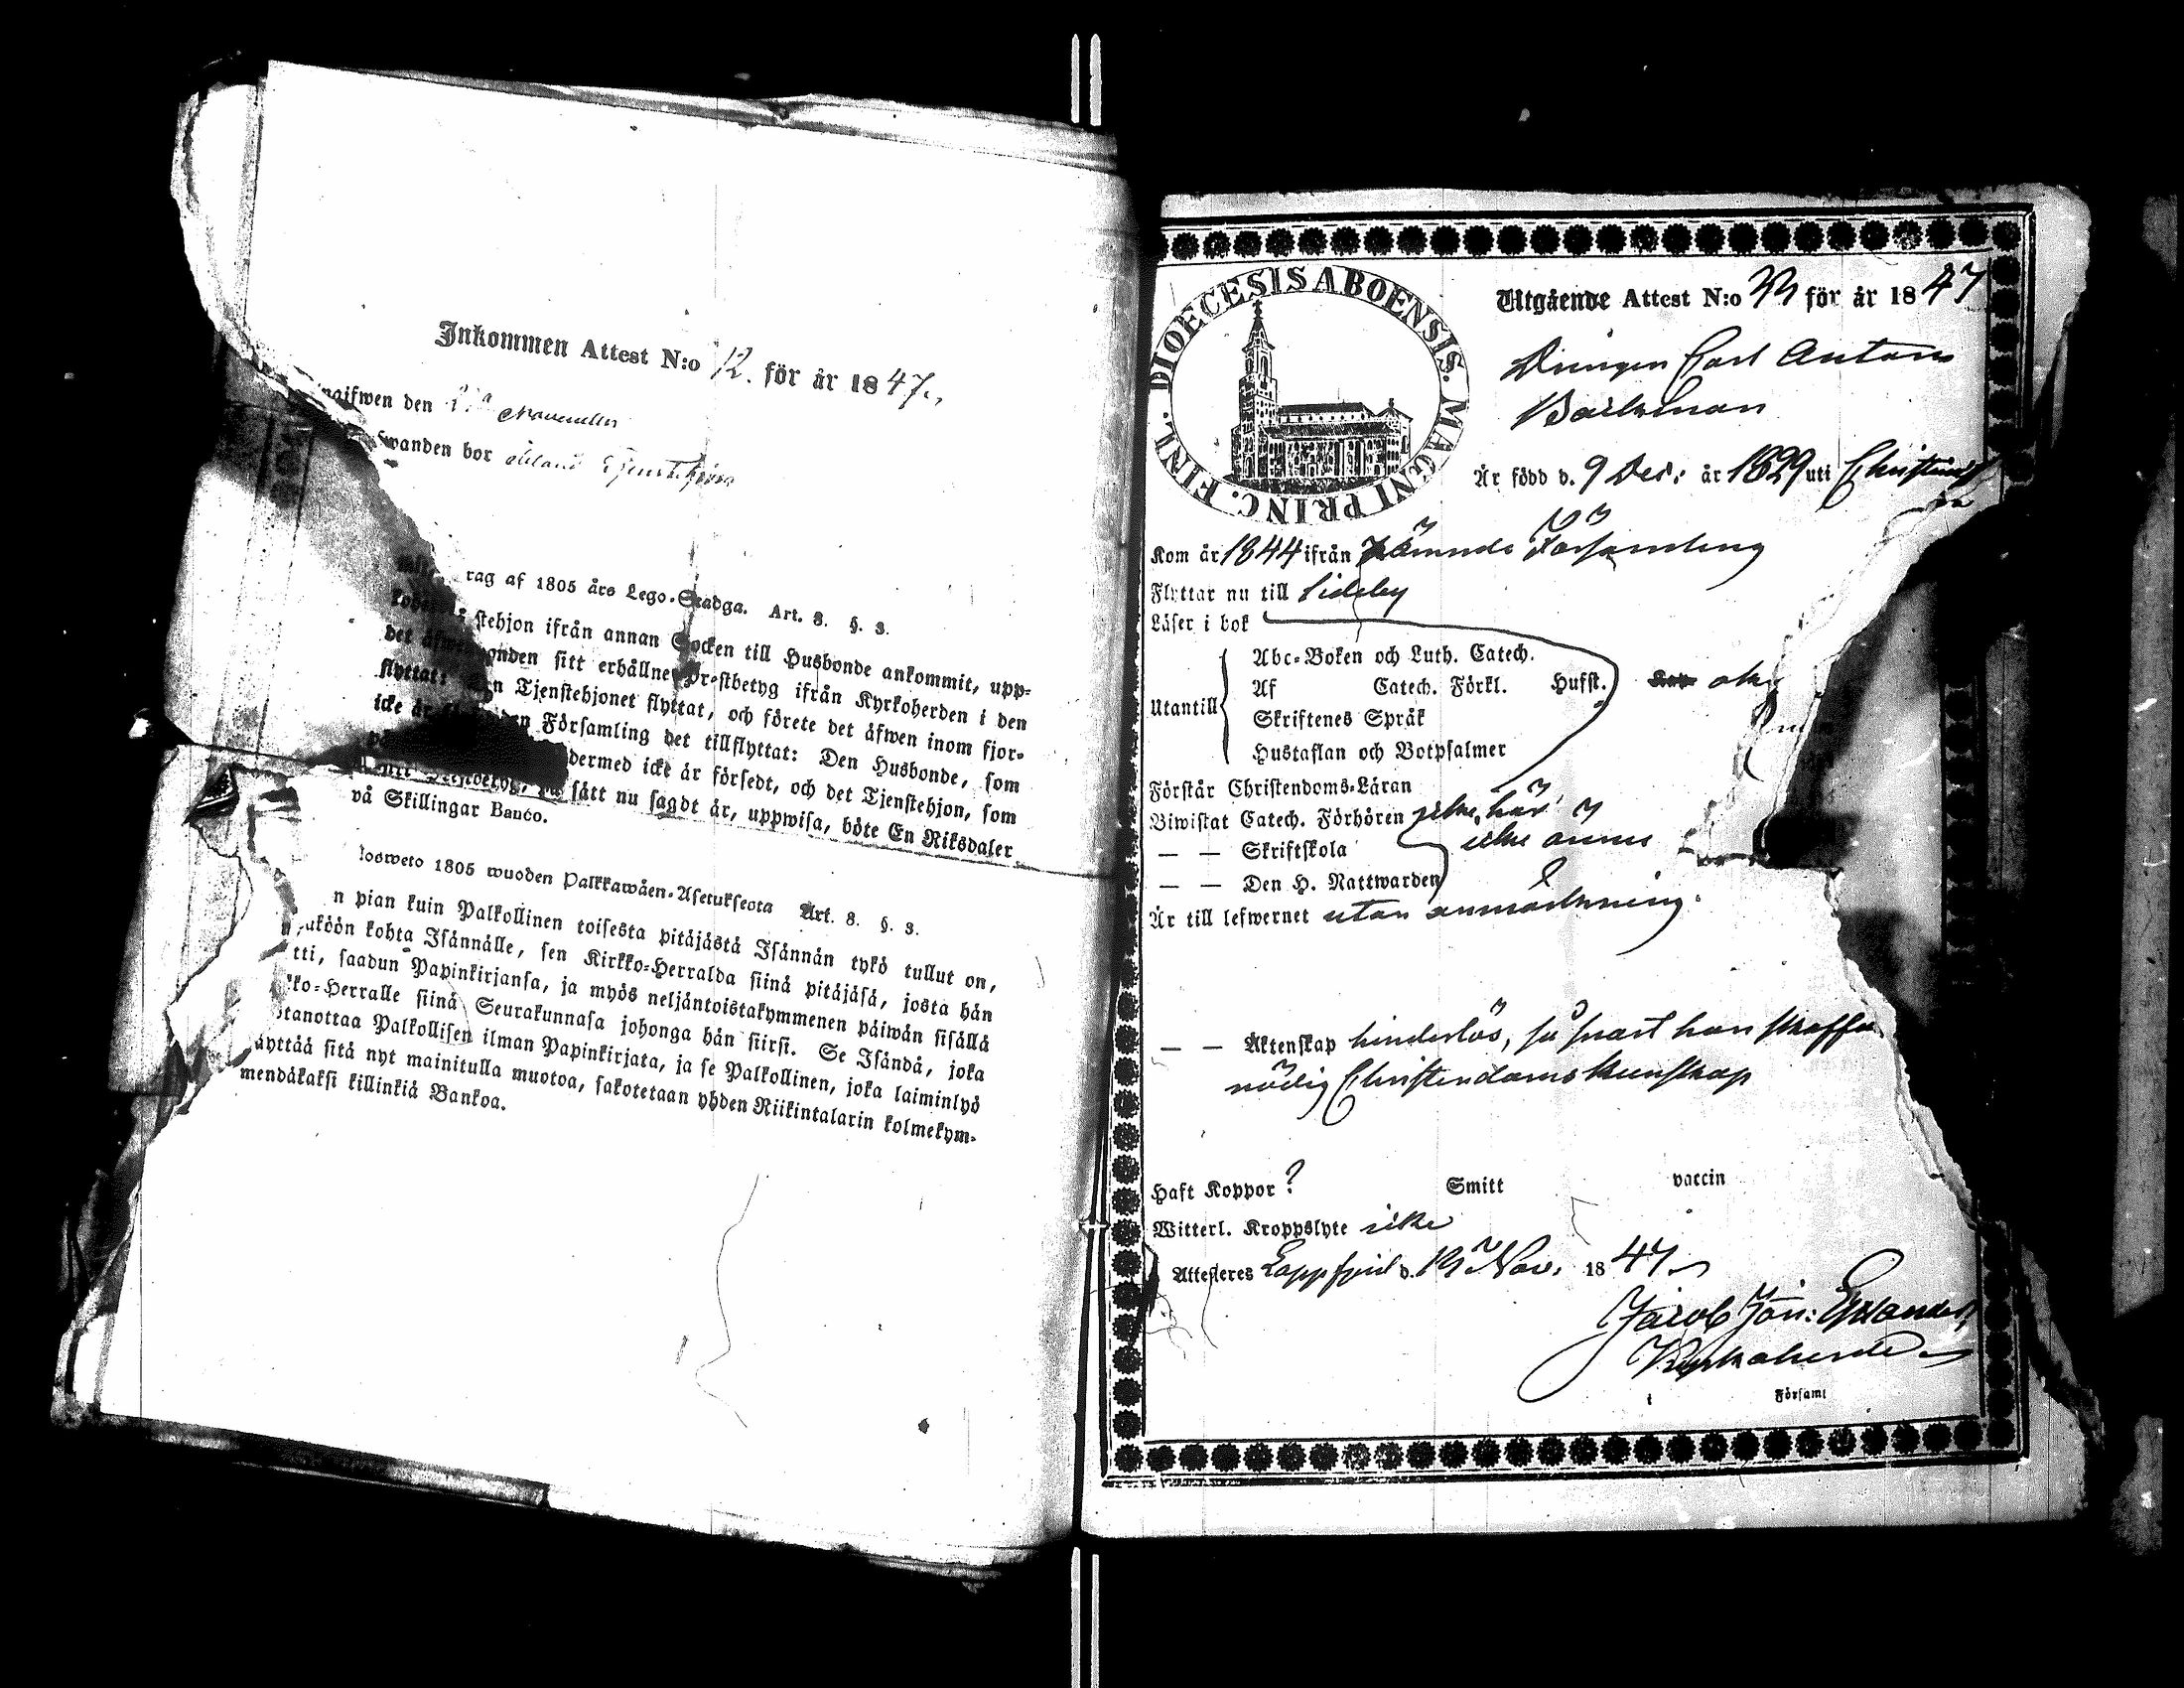 Inkommen Attest N:o 12. för år 1847.
den
wanden bor
rag af 1805 års Lego-Stadga. Art. 8. §. 3.
stehjon ifrån annan Socken till Husbonde ankommit, upp-
onden sitt erhållne Prestbetyg ifrån Kyrkoherden i den
n Tjenstehjonet flyttat, och förete det äfwen inom fjor-
den Församling det tillflyttat: Den Husbonde, som
dermed icke är försedt, och det Tjenstehjon, som
sätt nu sagdt är, uppwisa, böte En Riksdaler
Skillingar Banco.
1805 wuoden Palkkawäen-Asetuksesta Art. 8. §. 3.
n pian kuin Palkollinen toisesta pitäjästä Isännän tykö tullut on,
kohta Isännälle, sen Kirkko-Herralda siinä pitäjäsä, josta hän
tti, saadun Papinkirjansa, ja myös neljäntoistakymmenen päiwän sisällä
ko-Herralle siinä Seurakunnasa johonga hän siirsi. Se Isändä, joka
otanottaa Palkollisen ilman Papinkirjata, ja se Palkollinen, joka laiminlyö
äyttää sitä nyt mainitulla muotoa, sakotetaan yhden Riikintalarin kolmekym-
mendäkaksi killinkiä Bankoa.
DIOECESIS ABOENSIS. MAGNI PRINC. FINL.
Utgående Attest N:o för år 1847
Drängen Carl Anton
Backman
Är född d. 9 Dec: år 1829 uti
Kom år 1844 ifrån nämnde Församling
Flyttar nu till Sideby
Läser i bok
Utantill
Abc-Boken och Luth. Catech.
Af Catech. Förkl. Husf.
Skriftenes Språk
Hustaflan och Botpsalmer
Förstår Christendoms-Läran
Biwistat Catech. Förhören icke här
— — Skriftskola icke ännu
— — Den H. Nattwarden
Är till lefwernet utan anmärkning.
— — Äktenskap hinderlös, så snart han skaffa
nödig Christendoms kunskap
Haft Koppor ? Smitt vaccin
Witterl. Kroppslyte icke
Attesteres Lappfjerd d. 19 Nov. 1847
Jacob Jon:
Kyrkoherde
i Församl